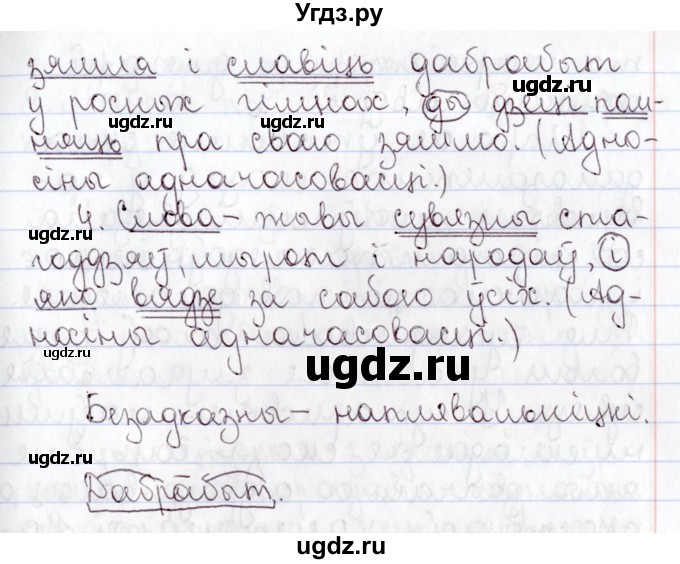 Угдз.ру
зямля і славіць дабрабыт
у розных гімнах, ды дзеці пом-
няць пра сваю зямлю. (Адно-
сіны адначасовасці.)
4. Слова – жывы сувязны ста-
годдзяў, шырот і народаў, і
яно вядзе за сабою ўсіх. (Ад-
носіны адначасовасці.)
Безадказны – наплявальніцкі.
Дабрабыт.
ugdz.ru
ugdz.ru
ugdz.ru
ugdz.ru
ugdz.ru
ugdz.ru
ugdz.ru
ugdz.ru
ugdz.ru
ugdz.ru
ugdz.ru